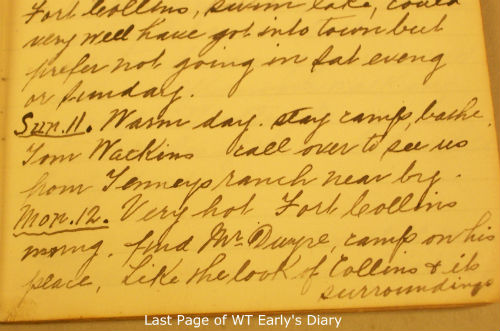 Fort Collins, swim lake, could
very well have got into town but
prefer not going in Sat eveng
or Sunday.
Sun. 11. Warm day. stay camp, bathe.
Tom Watkins call over to see us
from Tenneys ranch near by.
Mon. 12. Very hot Fort Collins
morng. find Mr. Dwyre, camp on his
place, Like the look of Collins & its
surroundings
Last Page of WT Early's Diary